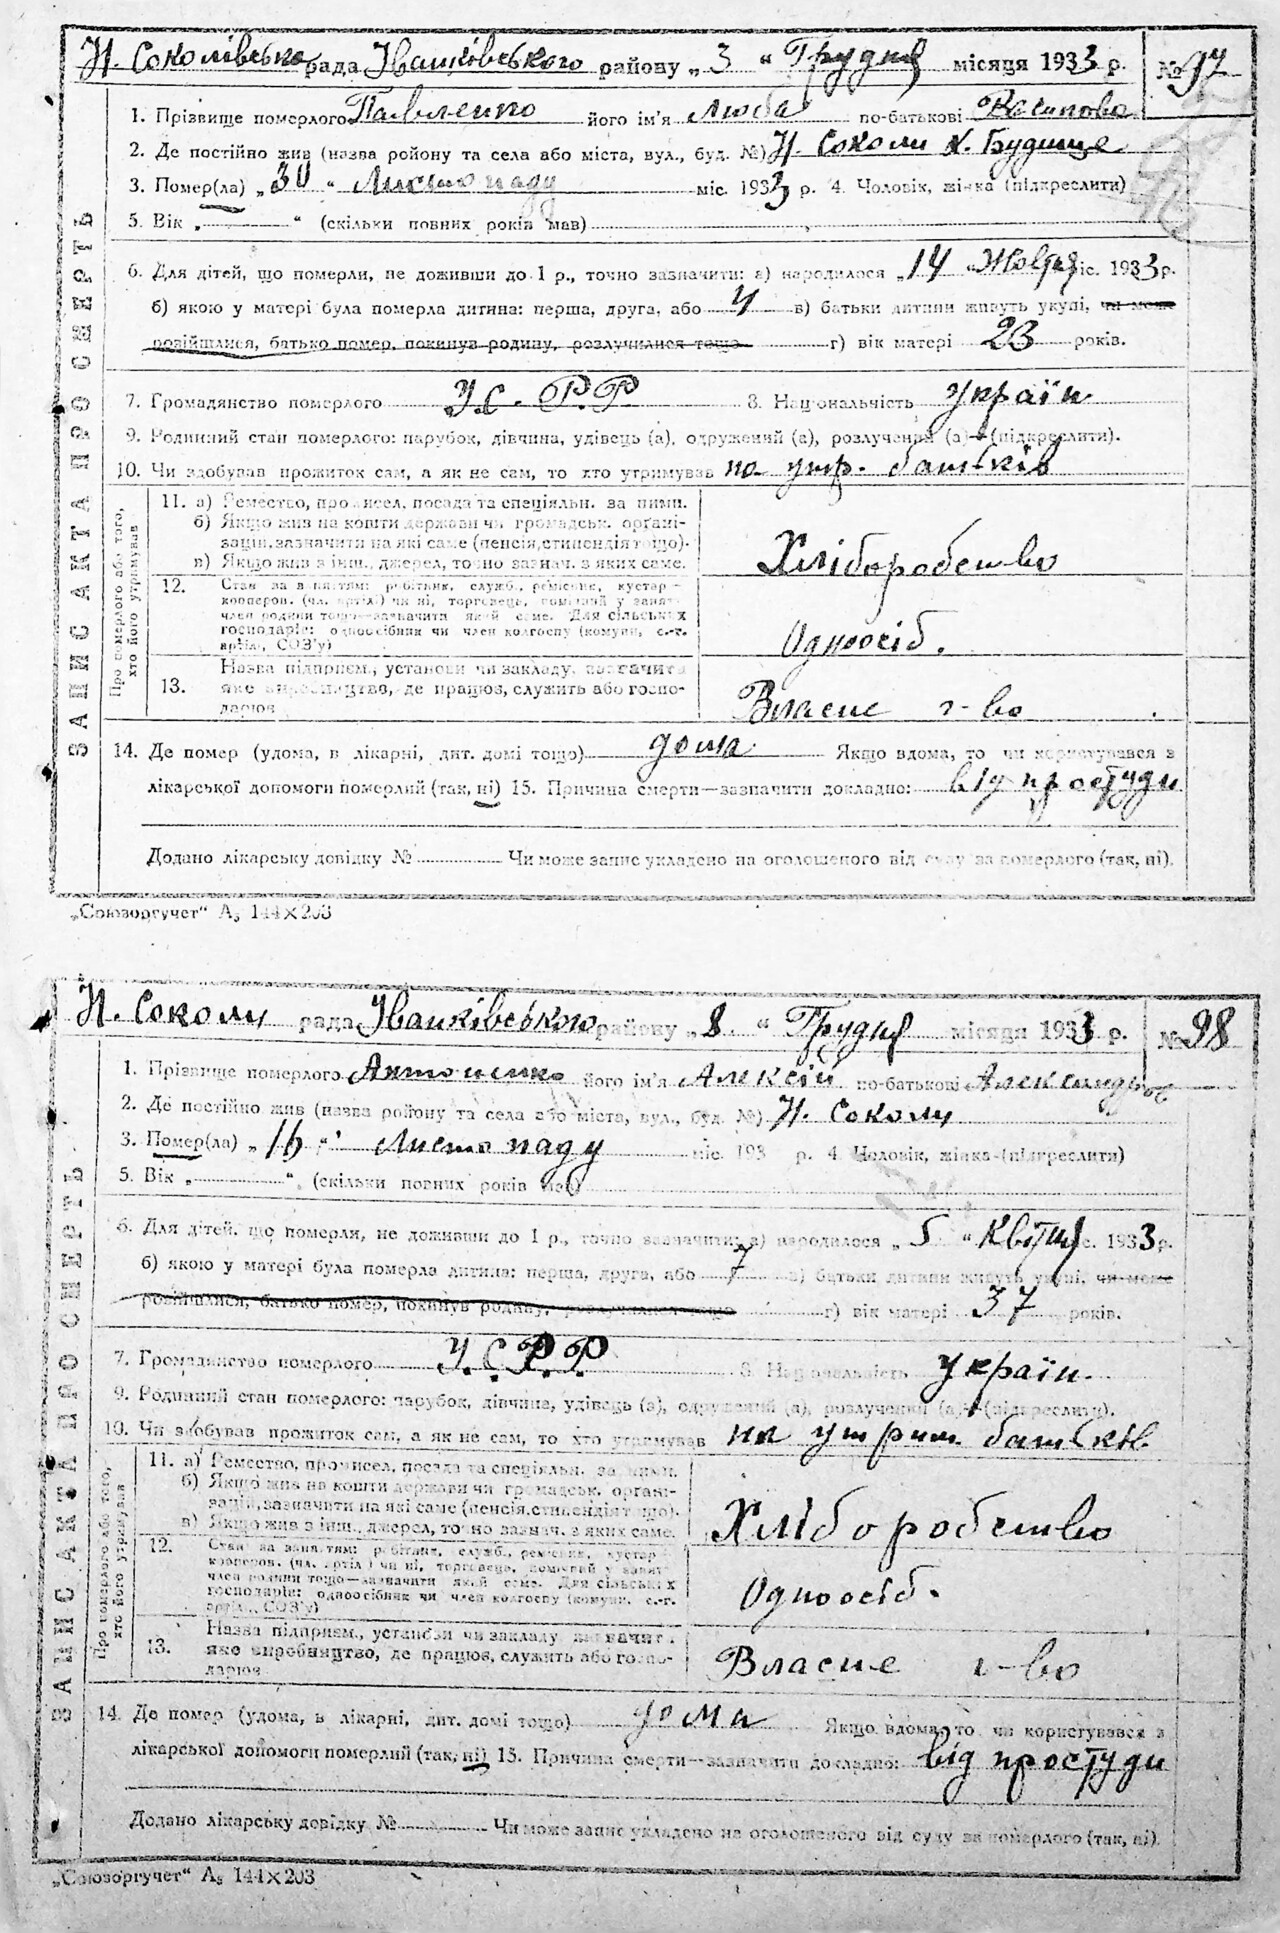 Н. Соколівська рада Іванківського району „3 “ Грудня місяця 1933 р. № 97
ЗАПИС АКТА ПРО СМЕРТЬ
1. Прізвище померлого Павленко його ім’я Люба по-батькові
2. Де постійно жив (назва ройону та села або міста, вул., буд. №) Н. Соколи х. Будище
3. Помер(ла) „ 30 “ Листопаду міс. 1933 р. 4. Чоловік, жінка (підкреслити)
5. Вік „ “ (скільки повних років мав)
6. Для дітей, що померли, не доживши до 1 р., точно зазначити: а) народилося „ 14 “ Жовтня міс. 1933 р.
б) якою у матері була померла дитина: перша, друга, або 4 в) батьки дитини живуть укупі, чи може
розійшлися, батько помер, покинув родину, розлучилися тощо г) вік матері 23 років.
7. Громадянство померлого У.С.Р.Р 8. Національність україн
9. Родинний стан померлого: парубок, дівчина, удівець (а), одружений (а), розлучений (а) (підкреслити).
10. Чи здобував прожиток сам, а як не сам, то хто утримував на утр. батьків
Про померлого або того, хто його утримував
11. а) Ремество, промисел, посада та спеціяльн. за ними.
б) Якщо жив на кошти держави чи громадськ. орґані-
зацій, зазначити на які саме (пенсія, стипендія тощо).
в) Якщо жив з інш., джерел, точно зазнач. з яких саме.
Хліборобство
12. Стан за заняттям: робітник, служб., ремісник, кустар
кооперов. (чл. артілі) чи ні, торговець, помічний у занят.
член родини тощо—зазначити який саме. Для сільських
господарів: одноосібник чи член колгоспу (комуни, с.-г.
артілі, СОЗ’у)
Одноосіб.
13. Назва підприєм., установи чи закладу, зазначити
яке виробництво, де працює, служить або госпо-
дарює
Власне г-во
14. Де помер (удома, в лікарні, дит. домі тощо) дома Якщо вдома, то чи користувався з
лікарської допомоги померлий (так, ні) 15. Причина смерти—зазначити докладно: від простуди
Додано лікарську довідку № Чи може запис укладено на оголошеного від суду за померлого (так, ні).
„Союзоргучет“ А₅ 144×203
Н. Соколи рада Іванківського району „ 8 “ Грудня місяця 1933 р. № 98
ЗАПИС АКТА ПРО СМЕРТЬ
1. Прізвище померлого Антоненко його ім’я Алексій по-батькові Александров
2. Де постійно жив (назва ройону та села або міста, вул., буд. №) Н. Соколи
3. Помер(ла) „ 16 “ Листопаду міс. 193 р. 4. Чоловік, жінка (підкреслити)
5. Вік „ “ (скільки повних років мав)
6. Для дітей, що померли, не доживши до 1 р., точно зазначити: а) народилося „ 5 “ Квітня міс. 1933 р.
б) якою у матері була померла дитина: перша, друга, або 7 в) батьки дитини живуть укупі, чи може
розійшлися, батько помер, покинув родину, розлучилися тощо г) вік матері 37 років.
7. Громадянство померлого У.С.Р.Р 8. Національність україн.
9. Родинний стан померлого: парубок, дівчина, удівець (а), одружений (а), розлучений (а) (підкреслити).
10. Чи здобував прожиток сам, а як не сам, то хто утримував на утрим. батьків.
Про померлого або того, хто його утримував
11. а) Ремество, промисел, посада та спеціяльн. за ними.
б) Якщо жив на кошти держави чи громадськ. орґані-
зацій, зазначити на які саме (пенсія, стипендія тощо).
в) Якщо жив з інш., джерел, точно зазнач. з яких саме.
Хліборобство
12. Стан за заняттям: робітник, служб., ремісник, кустар
кооперов. (чл. артілі) чи ні, торговець, помічний у занят.
член родини тощо—зазначити який саме. Для сільських
господарів: одноосібник чи член колгоспу (комуни, с.-г.
артілі, СОЗ’у)
Одноосіб.
13. Назва підприєм., установи чи закладу, зазначит.
яке виробництво, де працює, служить або госпо-
дарює
Власне г-во
14. Де помер (удома, в лікарні, дит. домі тощо) дома Якщо вдома, то чи користувався з
лікарської допомоги померлий (так, ні) 15. Причина смерти—зазначити докладно: від простуди
Додано лікарську довідку № Чи може запис укладено на оголошеного від суду за померлого (так, ні).
„Союзоргучет“ А₅ 144×203